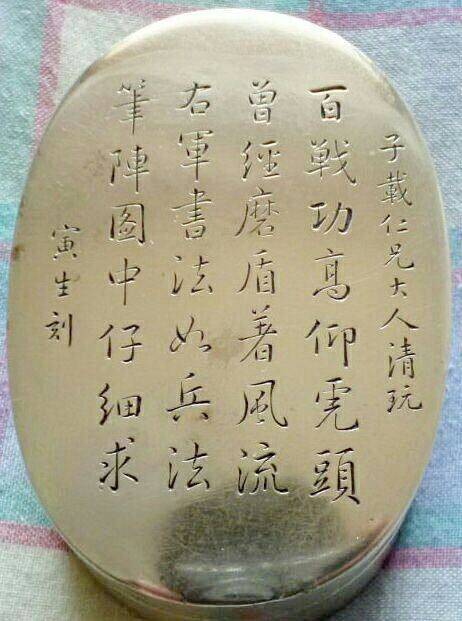 子載仁兄大人清玩
百戰功高仰虎頭
曾經磨盾著風流
右軍書法如兵法
筆陣圖中仔細求
寅生刻